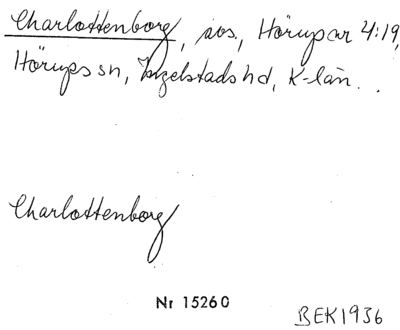 Charlottenborg, sos, Hörupar 4:19,
Hörups sn, Ingelstads hd, K-län.
Charlottenborg
Nr 15260
BEK1936